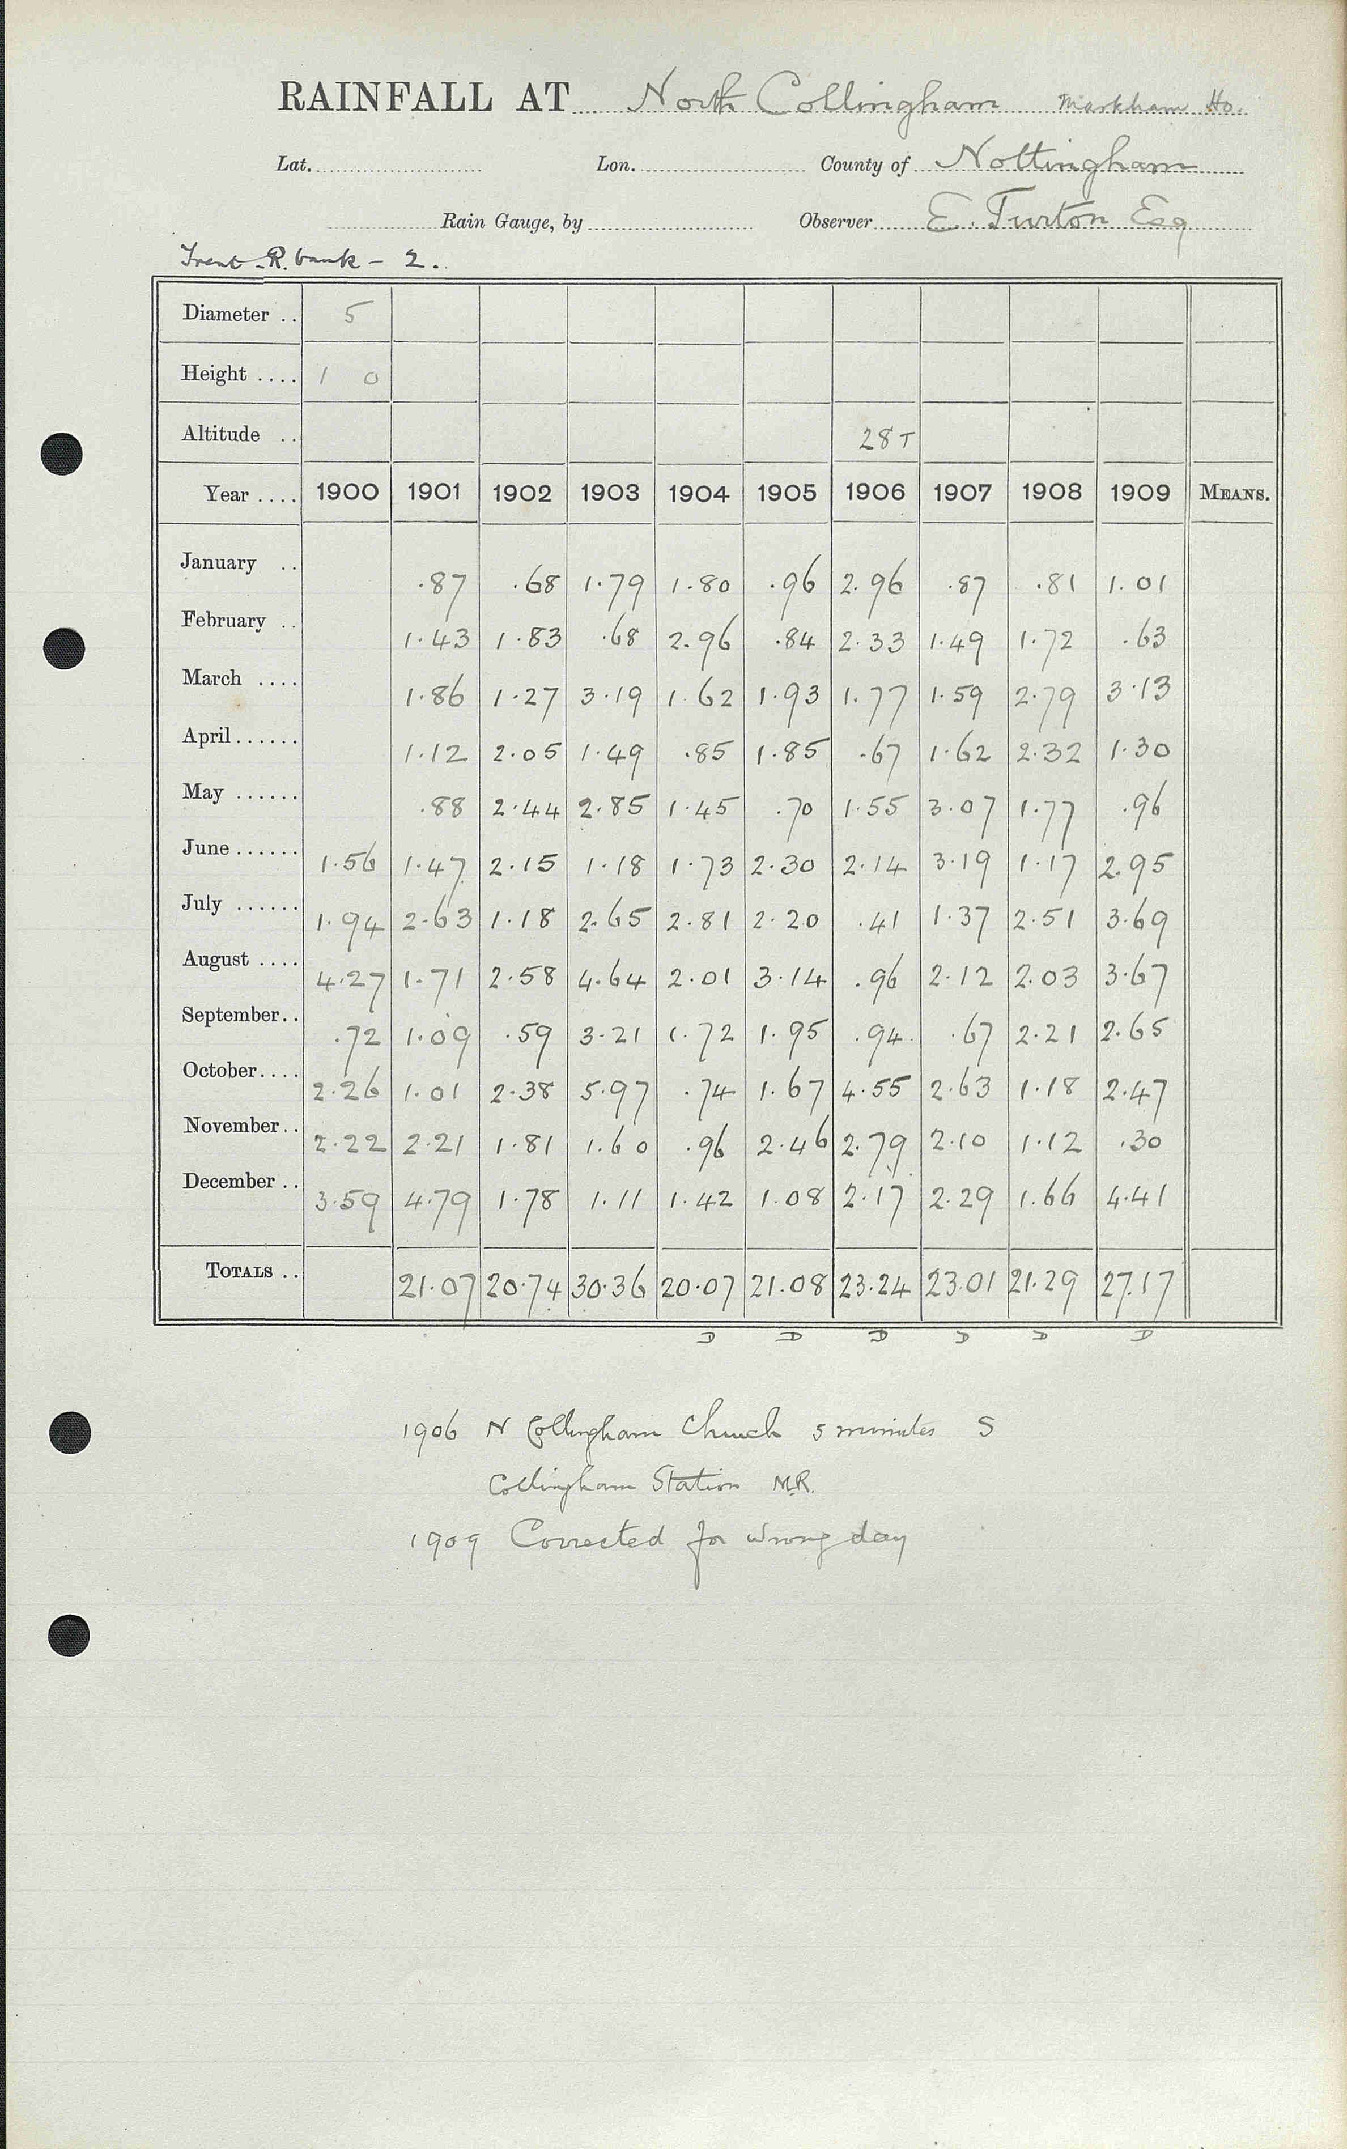 RAINFALL AT North Collingham Markham Ho.
Lat. Lon. County of Nottingham
Rain Gauge, by Observer E. Turton Esq
Trent R. bank - 2.
Diameter .. 5
Height .... 1 0
Altitude .. 28 T
Year .... 1900 1901 1902 1903 1904 1905 1906 1907 1908 1909 MEANS.
January .. .87 .68 1.79 1.80 .96 2.96 .87 .81 1.01
February .. 1.43 1.83 .68 2.96 .84 2.33 1.49 1.72 .63
March .... 1.86 1.27 3.19 1.62 1.93 1.77 1.59 2.79 3.13
April...... 1.12 2.05 1.49 .85 1.85 .67 1.62 2.32 1.30
May ...... .88 2.44 2.85 1.45 .70 1.55 3.07 1.77 .96
June ...... 1.56 1.47 2.15 1.18 1.73 2.30 2.14 3.19 1.17 2.95
July ...... 1.94 2.63 1.18 2.65 2.81 2.20 .41 1.37 2.51 3.69
August .... 4.27 1.71 2.58 4.64 2.01 3.14 .96 2.12 2.03 3.67
September.. .72 1.09 .59 3.21 1.72 1.95 .94 .67 2.21 2.65
October.... 2.26 1.01 2.38 5.97 .74 1.67 4.55 2.63 1.18 2.47
November.. 2.22 2.21 1.81 1.60 .96 2.46 2.79 2.10 1.12 .30
December .. 3.59 4.79 1.78 1.11 1.42 1.08 2.17 2.29 1.66 4.41
TOTALS .. 21.07 20.74 30.36 20.07 21.08 23.24 23.01 21.29 27.17
D D D D D D
1906 N Collingham Church 5 minutes S
Collingham Station M.R.
1909 Corrected for wrong day